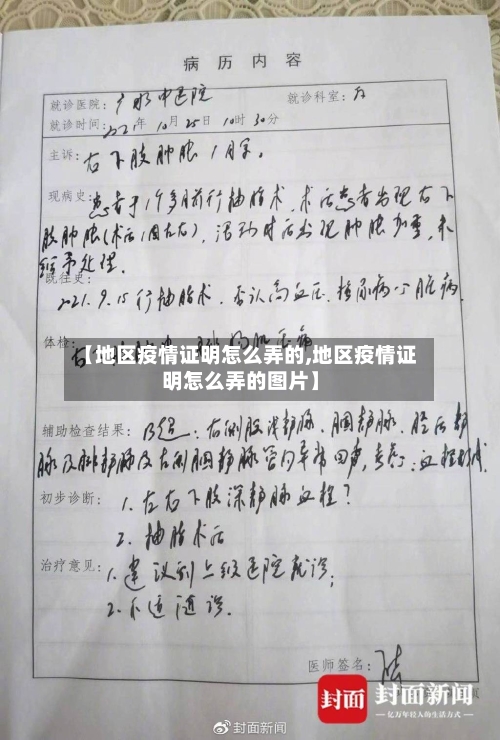 病 历 内 容
就诊医院: 广水中医院 就诊科室:
就诊时间: 2021年 10月 25日 10时 30分
主诉: 右下肢肿胀1月余。
现病史: 患者于1个多月前行抽脂术,术后患者出现右下
肢肿胀(术后1周左右),活动时后出现肿胀加重,未
予处理.
既往史:
2021.9.15行抽脂术. 否认高血压、糖尿病、心脏病.
体检:
【地区疫情证明怎么弄的,地区疫情证
明怎么弄的图片】
辅助检查结果: B超: 右侧股深静脉、腘静脉、胫后静
脉及腓静脉及右侧腘静脉管内异常回声,考虑:血栓形成.
初步诊断: 1. 右下肢深静脉血栓?
2. 抽脂术后
治疗意见: 1. 建议到上级医院就诊;
2. 不适随诊.
医师签名:
封面 封面新闻
亿万年轻人的生活方式
封面新闻